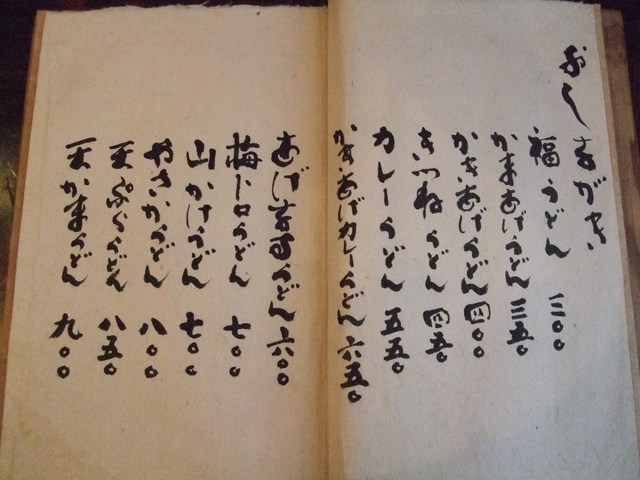 おしながき
福うどん 三〇〇
かまあげうどん 三五〇
かきあげうどん 四〇〇
きつねうどん 四五〇
カレーうどん 五五〇
かきあげカレーうどん 六五〇
あげなすうどん 六〇〇
梅トロうどん 七〇〇
山かけうどん 七〇〇
やさかうどん 八〇〇
天ぷらうどん 八五〇
天かまうどん 九〇〇